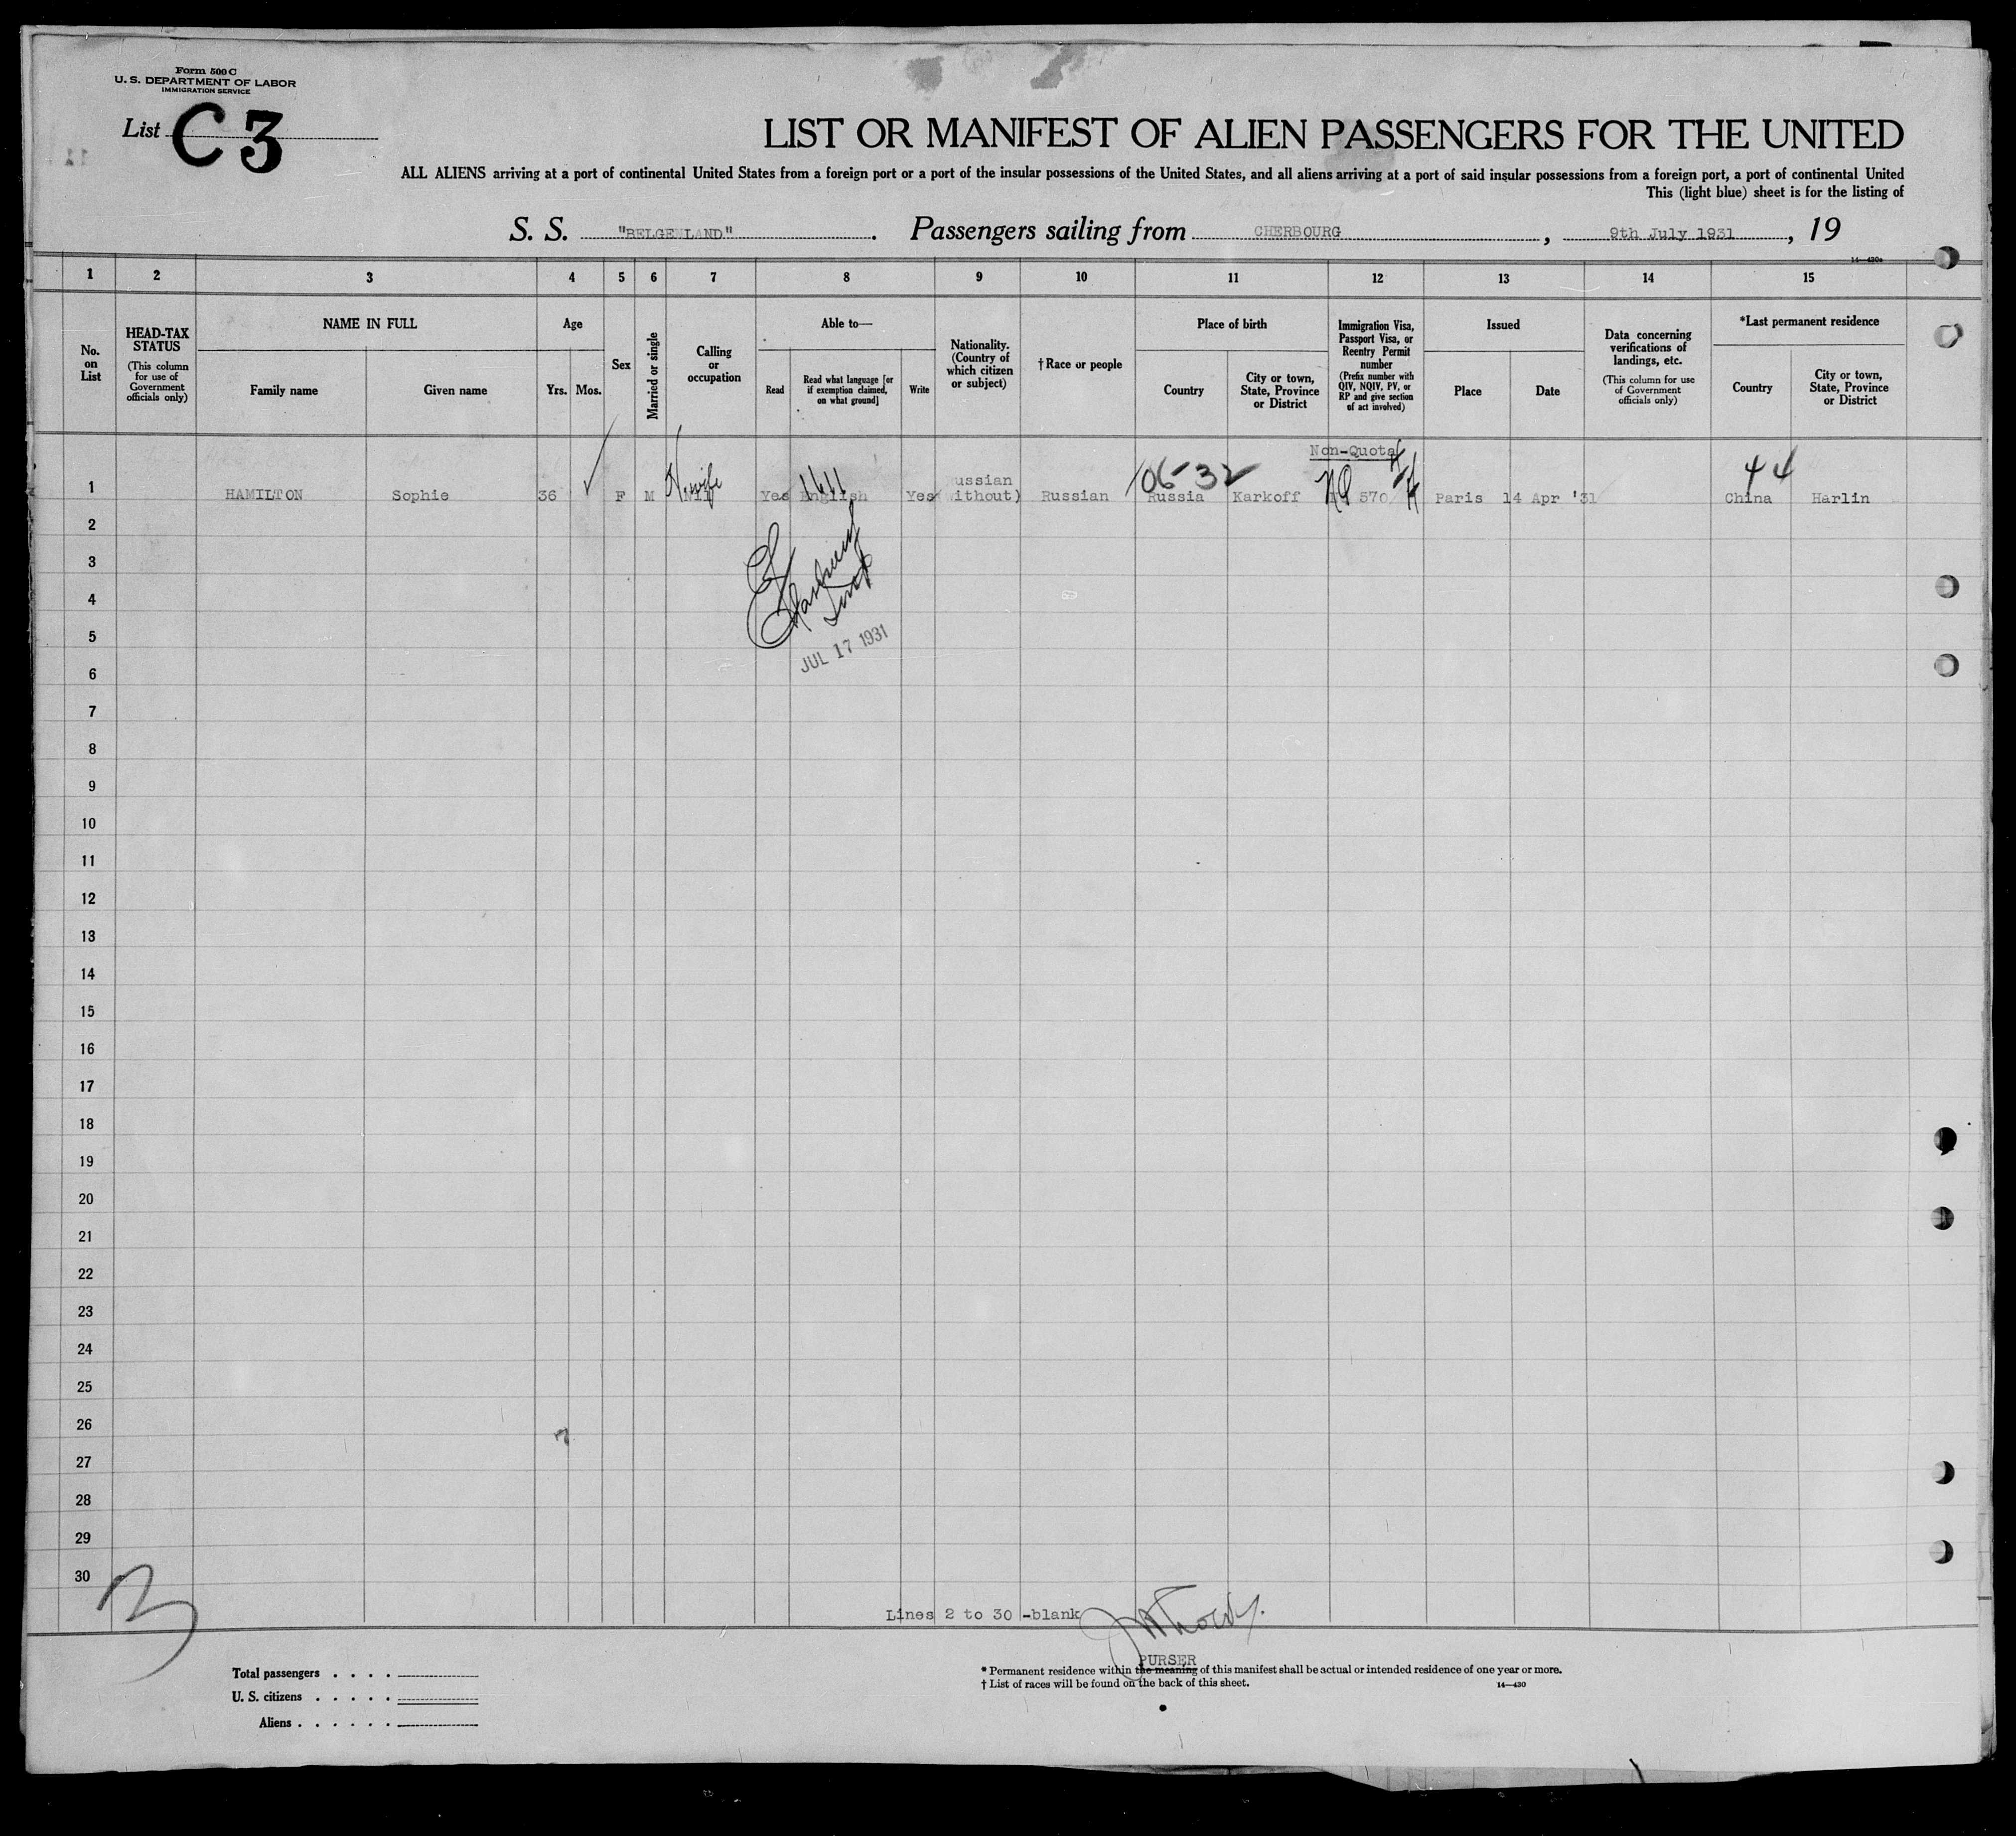 Form 500 C
U. S. DEPARTMENT OF LABOR
IMMIGRATION SERVICE
List C 3
LIST OR MANIFEST OF ALIEN PASSENGERS FOR THE UNITED
ALL ALIENS arriving at a port of continental United States from a foreign port or a port of the insular possessions of the United States, and all aliens arriving at a port of said insular possessions from a foreign port, a port of continental United
This (light blue) sheet is for the listing of
S. S. "BELGENLAND". Passengers sailing from CHERBOURG, 9th July 1931, 19
14—430a
1 2 3 4 5 6 7 8 9 10 11 12 13 14 15
No. on List
HEAD-TAX STATUS
(This column for use of Government officials only)
NAME IN FULL
Family name
Given name
Age
Yrs. Mos.
Sex
Married or single
Calling or occupation
Able to—
Read
Read what language [or if exemption claimed, on what ground]
Write
Nationality. (Country of which citizen or subject)
† Race or people
Place of birth
Country
City or town, State, Province or District
Immigration Visa, Passport Visa, or Reentry Permit number
(Prefix number with QIV, NQIV, PV, or RP and give section of act involved)
Issued
Place
Date
Data concerning verifications of landings, etc.
(This column for use of Government officials only)
*Last permanent residence
Country
City or town, State, Province or District
Non-Quota
106-32
44
1 HAMILTON Sophie 36 F M H.wife Yes English Yes ussian ithout) Russian Russia Karkoff NQ 570 Paris 14 Apr '31 China Harlin
2
3
4
5
JUL 17 1931
6
7
8
9
10
11
12
13
14
15
16
17
18
19
20
21
22
23
24
25
26
27
28
29
30
Lines 2 to 30 -blank
PURSER
Total passengers
U. S. citizens
Aliens
* Permanent residence within the meaning of this manifest shall be actual or intended residence of one year or more.
† List of races will be found on the back of this sheet.
14—430